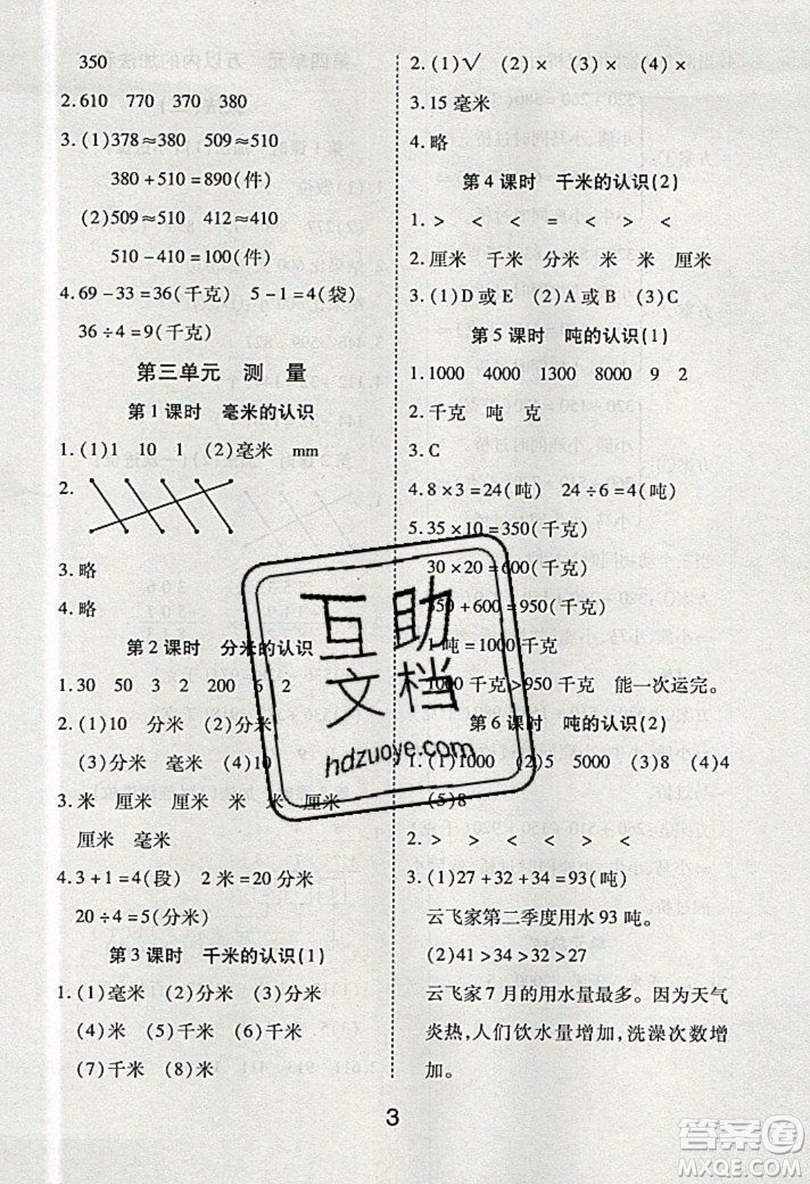 350
2. 610 770 370 380
3. (1)378≈380 509≈510
380+510=890(件)
(2)509≈510 412≈410
510-410=100(件)
4. 69-33=36(千克) 5-1=4(袋)
36÷4=9(千克)
第三单元 测 量
第1课时 毫米的认识
1. (1)1 10 1 (2)毫米 mm
2.
3. 略
4. 略
第2课时 分米的认识
1. 30 50 3 2 200 6 2
2. (1)10 分米 (2)分米
(3)分米 毫米 (4)10
3. 米 厘米 厘米 米 米 厘米
厘米 毫米
4. 3+1=4(段) 2米=20分米
20÷4=5(分米)
第3课时 千米的认识(1)
1. (1)毫米 (2)分米 (3)分米
(4)米 (5)千米 (6)米
(7)千米 (8)米
2. (1)√ (2)× (3)× (4)×
3. 15毫米
4. 略
第4课时 千米的认识(2)
1. > < < = < > <
2. 厘米 千米 分米 米 米 厘米
3. (1)D或E (2)A或B (3)C
第5课时 吨的认识(1)
1. 1000 4000 1300 8000 9 2
2. 千克 吨 克
3. C
4. 8×3=24(吨) 24÷6=4(吨)
5. 35×10=350(千克)
30×20=600(千克)
350+600=950(千克)
1吨=1000千克
1000千克>950千克 能一次运完。
第6课时 吨的认识(2)
1. (1)1000 (2)5 5000 (3)8 (4)4
(5)8
2. > < > < < <
3. (1)27+32+34=93(吨)
云飞家第二季度用水93吨。
(2)41>34>32>27
云飞家7月的用水量最多。因为天气
炎热,人们饮水量增加,洗澡次数增
加。
3
互助
文档
hdzuoye.com
答案圈
MXQE.COM